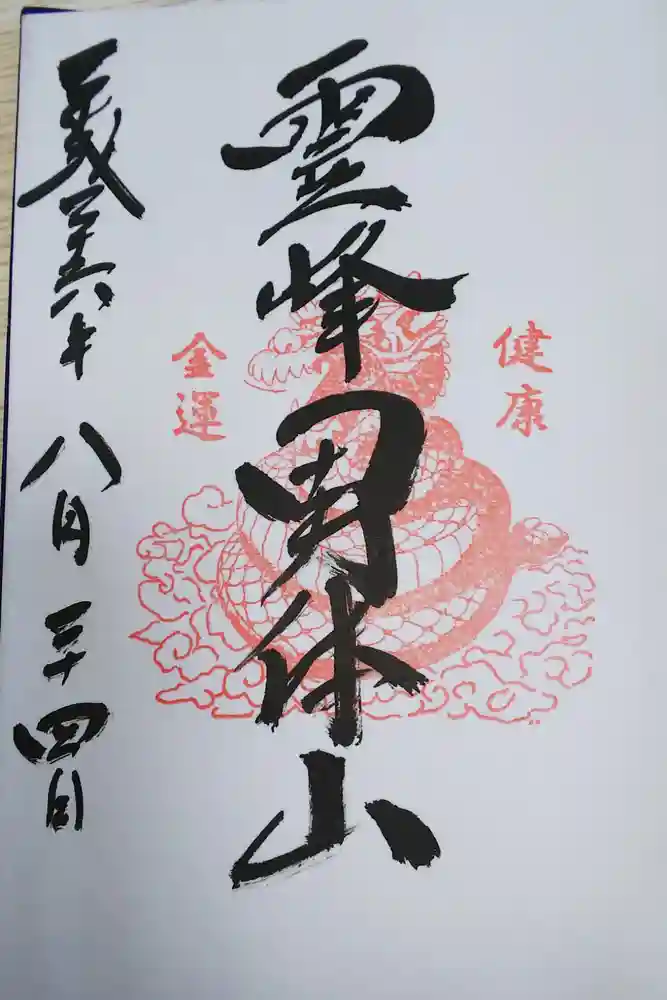 健康
霊峰男体山
金運
平成二十六年 八月二十四日